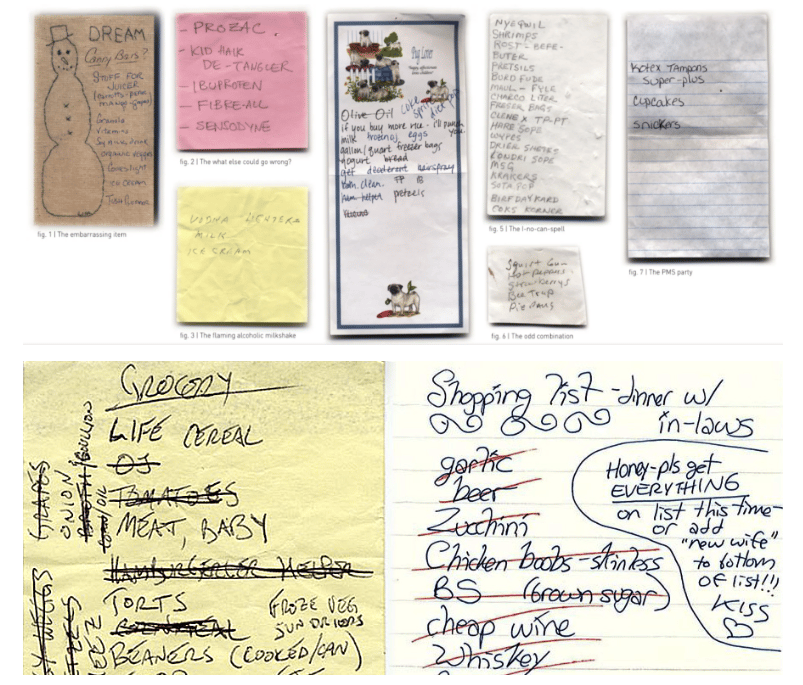 DREAM
Candy Bars?
STUFF FOR
JUICER
Granola
Vitamins
ORGANIC VEGGIES
ICE CREAM
fig. 1 | The embarrassing item
- PROZAC
- KID HAIR
DE-TANGLER
- IBUPROFEN
- FIBRE-ALL
- SENSODYNE
fig. 2 | The what else could go wrong?
VODKA
MILK
ICE CREAM
fig. 3 | The flaming alcoholic milkshake
Pug Lover
Olive Oil
coke
sprite
diet pop
if you buy more rice - I'll punch
you.
milk eggs
gallon/quart freezer bags
yogurt bread
get deoderent hairspray
TP
petzels
NYEQUIL
SHRIMPS
ROST-BEFE-
BUTER
PRETSILS
BURD FUDE
MAUL-FYLE
CHARCO LITER
FREEZER BAGS
CLENEX TR.PT
HARE SOPE
WYPES
DRIER SHETES
LONDRI SOPE
MSG
KRAKERS
SOTA POP
BIRFDAY KARD
COKS KORNER
fig. 5 | The I-no-can-spell
Squirt Gun
Hot Peppers
Strawberrys
Bee Trap
fig. 6 | The odd combination
Kotex Tampons
super-plus
cupcakes
snickers
fig. 7 | The PMS party
GROCERY
LIFE CEREAL
OJ
TOMATOES
MEAT, BABY
HAMBURGERLER HELPER
TORTS
FROZE VEG
CORNMEAL
SUN DRIEDS
BEANERS (COOKED/CAN)
GRAPES
ONION
BROTH/BUILLION
Shopping list - dinner w/
in-laws
garlic
beer
Zuchini
Chicken boobs - skinless
BS (brown sugar)
cheap wine
Whiskey
Honey - pls get
EVERYTHING
on list this time -
or add
"new wife"
to bottom
OF list!!!
KISS